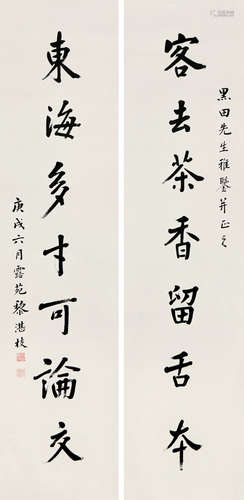 黑田先生雅鑒并正之
客去茶香留舌本
東海多才可論交
庚戌六月露苑黎湛枝